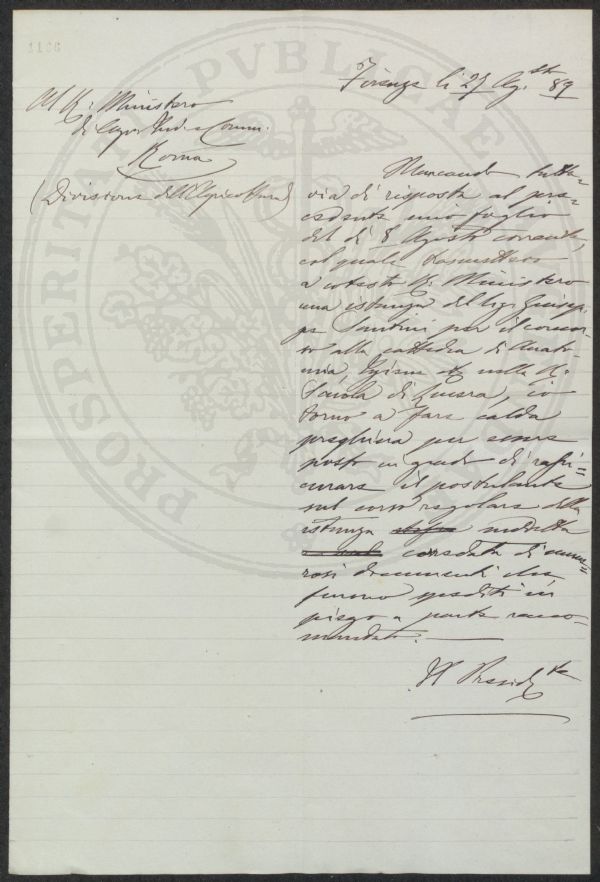 1166
PROSPERITATI PVBLICAE
Firenze li 27 Ag.sto 89
Al R. Ministero
di Agr. Ind. e Comm.
Roma
(Divisione dell'Agricoltura)
Mancando tutta-
via di risposta al pre=
cedente mio foglio
del dì 8 Agosto corrente,
col quale trasmettevo
a cotesto R. Ministero
una istanza del Sig. Giusep-
pe Santini per il concor-
so alla cattedra di Anato-
mia, Igiene nella R.
Scuola di, io
torno a fare calda
preghiera per essere
posto in grado di rassi=
curare il postulante
sul corso regolare della
istanza suddetta
corredata di nume=
rosi documenti che
furono spediti in
piego a parte racco-
mandato.
Il Presid.te